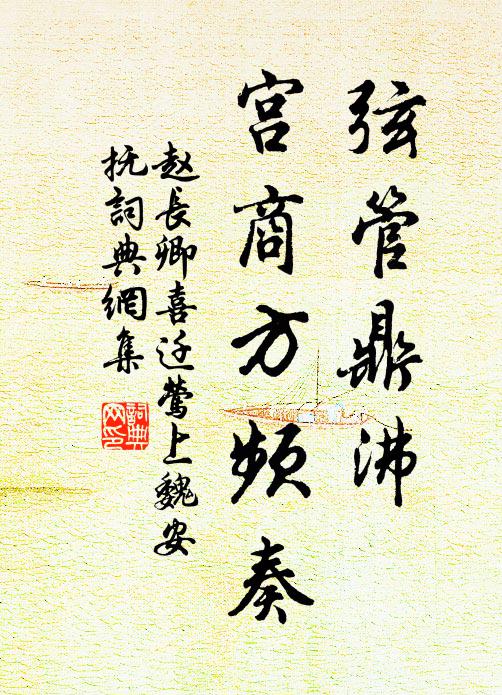 弦管鼎沸
宫商方频奏
赵長卿喜迁莺上魏安
抚詞典網集
詞典网印